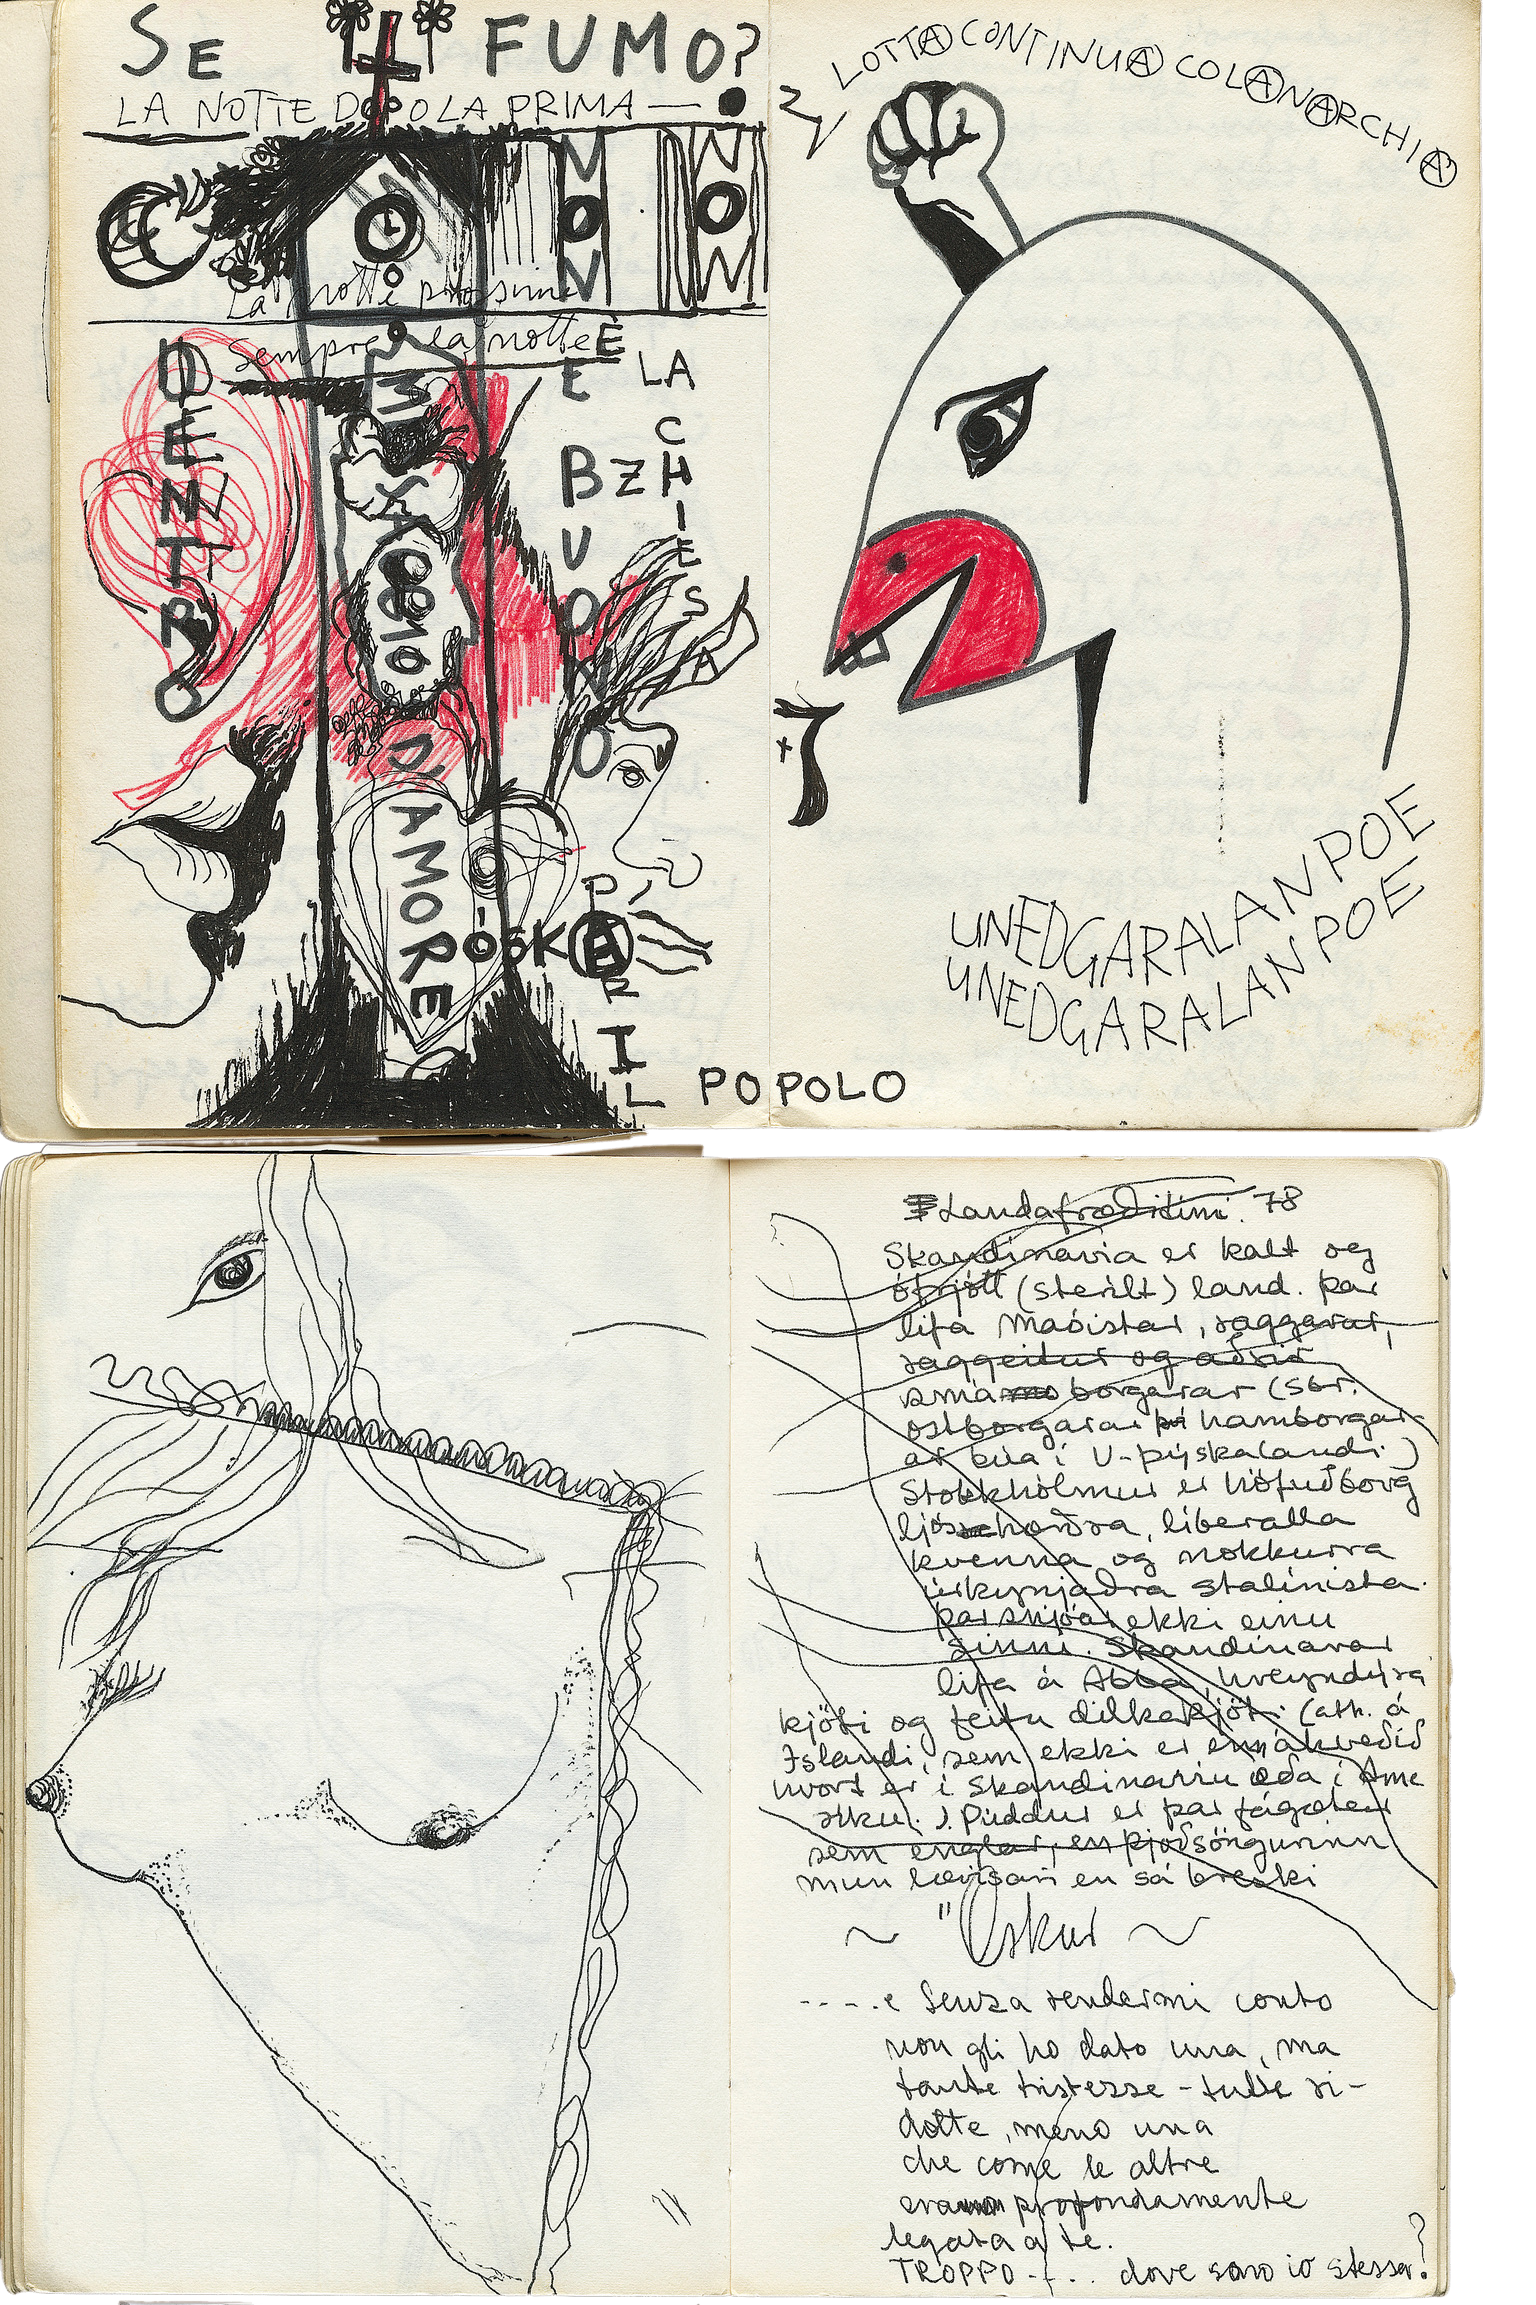 SE IL FUMO?
LA NOTTE DOPO LA PRIMA —
NON
NON
La notte prossima
Sempre la notte
DENTRO
MI SA
D'AMORE
È
E BUONO
LA
CHIESA
PER IL POPOLO
ÖSK
LOTTA CONTINUA COLANARCHIA
UNEDGARALANPOE
UNEDGARALANPOE
Landafræðitími. 78
Skandinavia er kalt og
ófrjótt (sterilt) land. þar
lifa Maóistar, raggarar,
raggeitur og aðrir
smá borgarar (sbr.
ostborgarar þó hamborgar-
ar búa í V-þýskalandi.)
Stokkhólmur er höfuðborg
ljós hærðra, liberalla
kvenna og nokkurra
úrkynjaðra stalínista.
þar snjóar ekki einu
sinni. Skandínavar
lifa á Abba, hreyndýra
kjöti og feitu dilkakjöti. (ath. á
Íslandi, sem ekki er enn ákveðið
hvort er í Skandinavíu eða í Ame
ríku.) Púddur er þar fágætar
sem englar, en þjóðsöngurinn
mun lævísari en sá breski
~ "Öskur ~
- - - - .e senza rendermi conto
non gli ho dato una, ma
tante tristezze - tutte ri-
dotte, meno una
che come le altre
era profondamente
legata a te.
TROPPO - - . . dove sono io stessa?